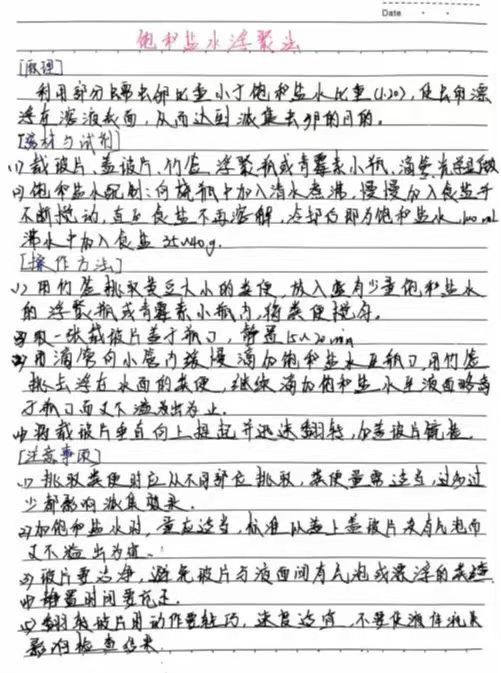 Date
饱和盐水浮聚法
[原理]
利用部分蠕虫卵比重小于饱和盐水比重(1.20),使虫卵漂
浮在溶液表面,从而达到减集虫卵的目的。
[器材与试剂]
(1)载玻片、盖玻片、竹签、浮聚瓶或青霉素小瓶、滴管、光学显微
(2)饱和盐水配制:向烧瓶中加入清水煮沸,慢慢加入食盐并
不断搅动,直至食盐不再溶解,冷却后即为饱和盐水,100mL
沸水中加入食盐35~40g.
[操作方法]
(1)用竹签挑取黄豆大小的粪便,放入盛有少量饱和盐水
的浮聚瓶或青霉素小瓶内,将粪便搅匀.
(2)取一张载玻片盖于瓶口,静置15~20min
(3)用滴管向小管内缓慢滴加饱和盐水至瓶口,用竹签
挑去浮在水面的粪便,继续滴加饱和盐水至液面略高
于瓶口而又不溢出为止.
(4)将载玻片垂直向上提起并迅速翻转,加盖玻片镜检.
[注意事项]
(1)挑取粪便时应从不同部位挑取,粪便量需适当,过多过
少都影响减集效果.
(2)加饱和盐水时,量应适当,标准以盖上盖玻片没有气泡而
又不溢出为宜.
(3)玻片要洁净,避免玻片与液面间有气泡或漂浮的粪渣.
(4)静置时间要充足.
(5)翻转玻片时动作要轻巧,速度适宜,不要使液体流失
影响检查结果.